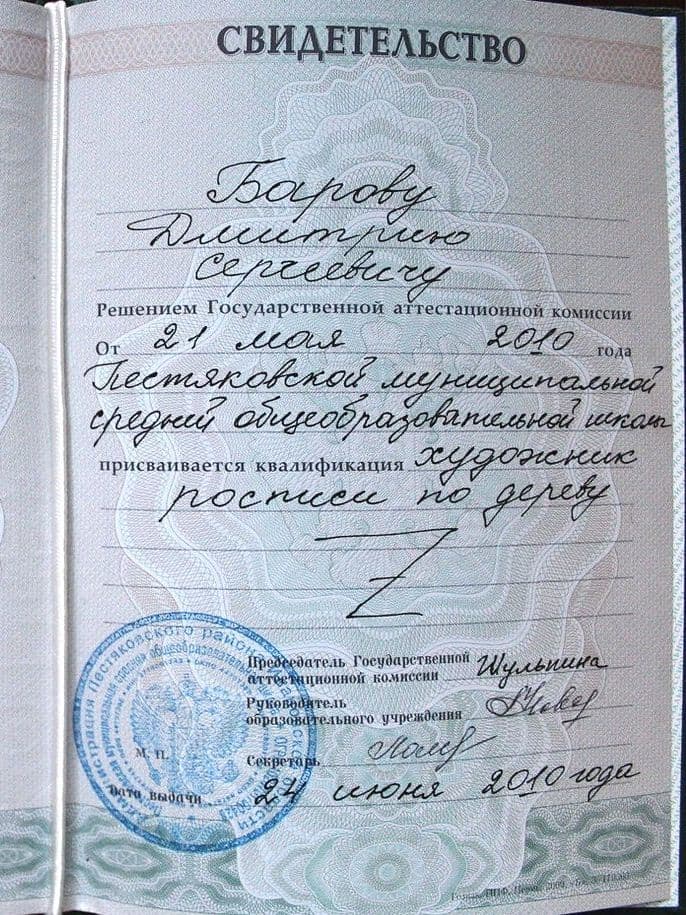 СВИДЕТЕЛЬСТВО
Барову
Дмитрию
Сергеевичу
Решением Государственной аттестационной комиссии
От 21 мая 2010 года
Пестяковской муниципальной
средней общеобразовательной школы
присваивается квалификация художник
росписи по дереву
Председатель Государственной
аттестационной комиссии Шульпина
Руководитель
образовательного учреждения
Секретарь
М. П.
Дата выдачи 24 июня 2010 года
Администрация Пестяковского района